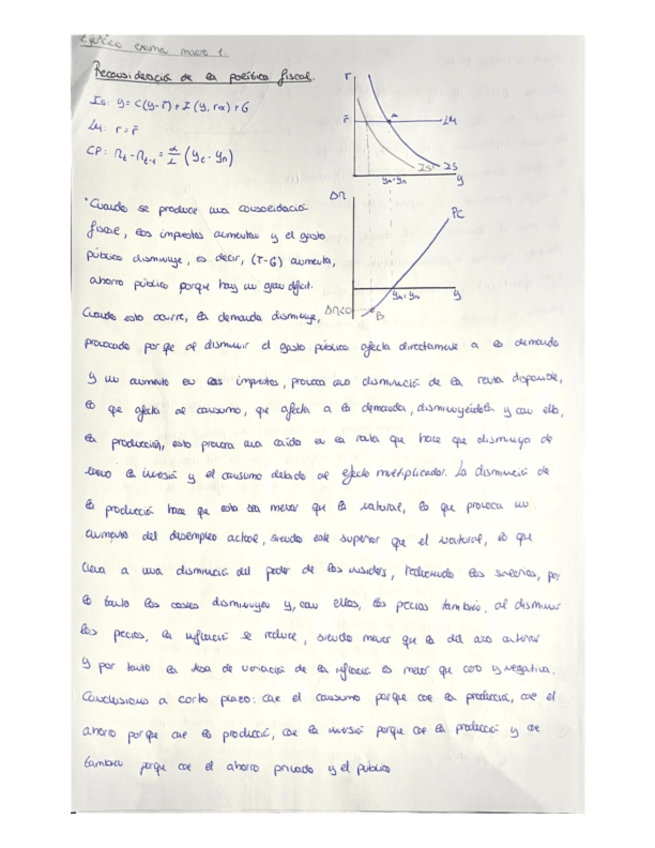 típico examen macro 1.
Reconsideración de la política fiscal.
IS: Y = C(Y-T) + I (Y, r+x) + G
LM: r = r̄
CP: π_t - π_t-1 = α/L (Y_t - Y_n)
r
r̄
a
LM
IS'
IS
Y_a=Y_n
Y
Δπ
PC
Y_a=Y_n
Y
Δπ<0
B
· Cuando se produce una consolidación
fiscal, los impuestos aumentan y el gasto
público disminuye, es decir, (T-G) aumenta,
ahorro público porque hay un gran déficit.
Cuando esto ocurre, la demanda disminuye,
provocado porque al disminuir el gasto público afecta directamente a la demanda
y un aumento en los impuestos, provoca una disminución de la renta disponible,
lo que afecta al consumo, que afecta a la demanda, disminuyéndola y con ella,
la producción, esto provoca una caída en la renta que hace que disminuya de
nuevo la inversión y el consumo debido al efecto multiplicador. La disminución de
la producción hace que esta sea menor que la natural, lo que provoca un
aumento del desempleo actual, siendo este superior que el natural, lo que
lleva a una disminución del poder de los insiders, reduciendo los salarios, por
lo tanto los costes disminuyen y, con ellos, los precios también, al disminuir
los precios, la inflación se reduce, siendo menor que la del año anterior
y por tanto la tasa de variación de la inflación es menor que cero y negativa.
Conclusiones a corto plazo: cae el consumo porque cae la producción, cae el
ahorro porque cae la producción, cae la inversión porque cae la producción y cae
también porque cae el ahorro privado y el público